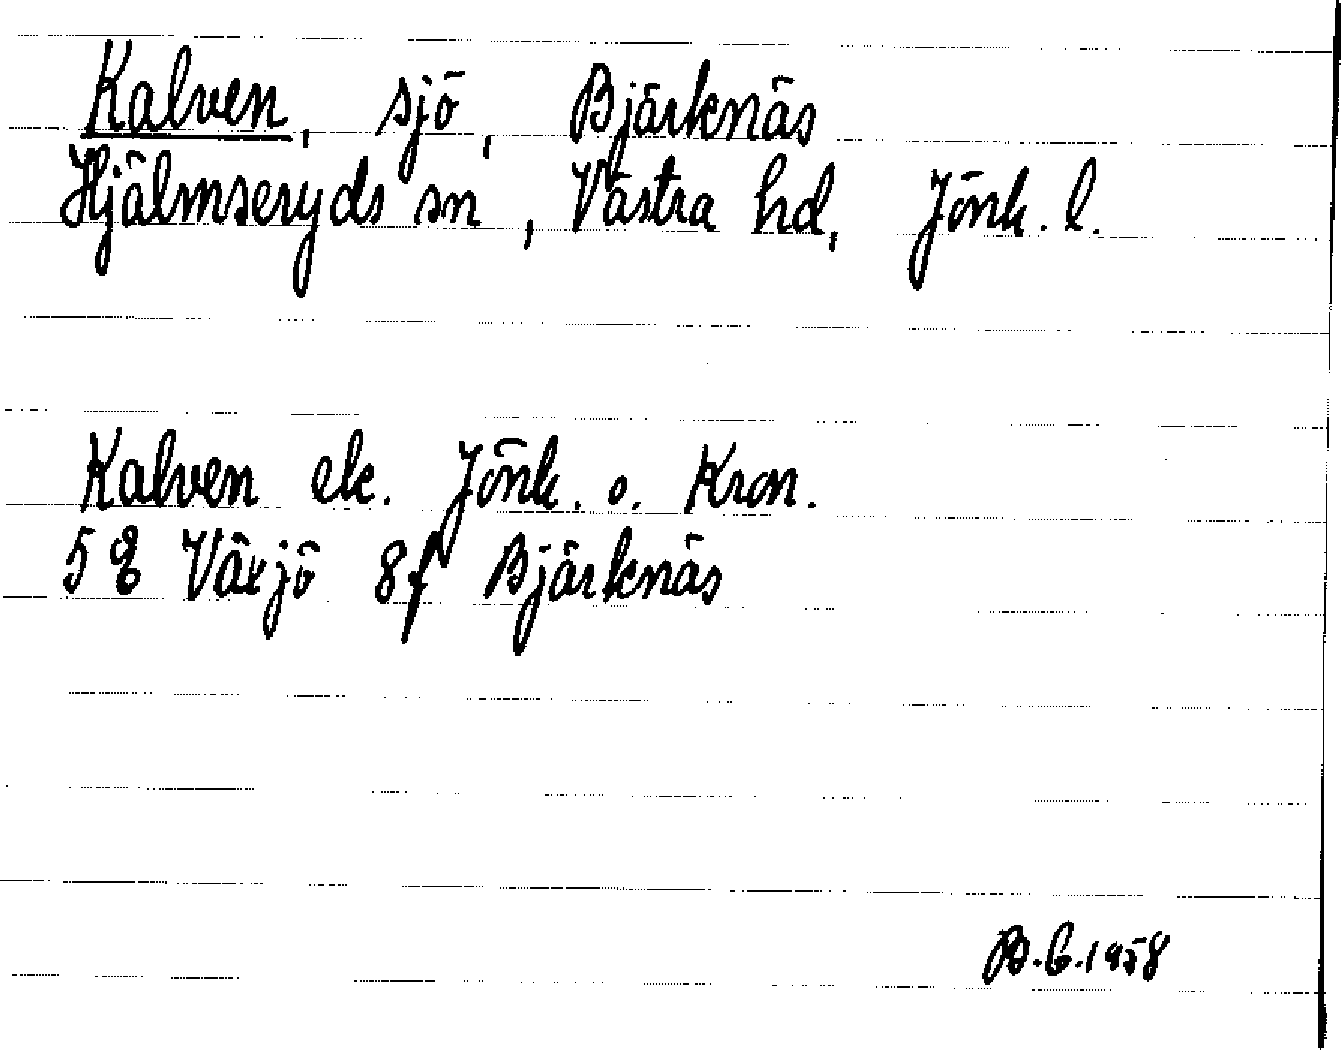 Kalven, sjö, Bjärknäs
Hjälmseryds sn, Västra hd, Jönk. l.
Kalven ek. Jönk. o. Kron.
5 E Växjö 8f Bjärknäs
B.E.1958